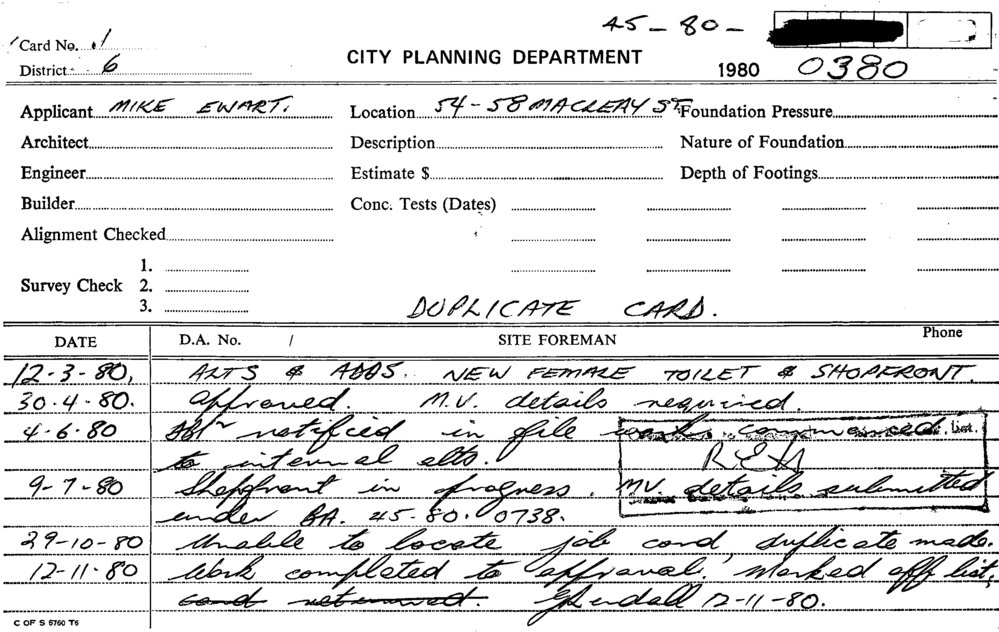 45-80-
Card No. 1
District 6
CITY PLANNING DEPARTMENT
1980 0380
Applicant MIKE EWART. Location 54-58 MACLEAY ST. Foundation Pressure
Architect Description Nature of Foundation
Engineer Estimate $ Depth of Footings
Builder Conc. Tests (Dates)
Alignment Checked
Survey Check 1.
2.
3.
DUPLICATE CARD.
DATE D.A. No. / SITE FOREMAN Phone
12-3-80, ALTS & ADDS. NEW FEMALE TOILET & SHOPFRONT.
30.4-80. Approved. M.V. details required.
4-6-80 notified in file works commenced. list.
to internal alts.
9-7-80 Shopfront in progress. MV. details submitted
under BA. 45.80.0738.
29-10-80 Unable to locate job card, duplicate made.
12-11-80 Work completed to approval. Marked off list,
card returned. 12-11-80.
C OF S 5760 T6